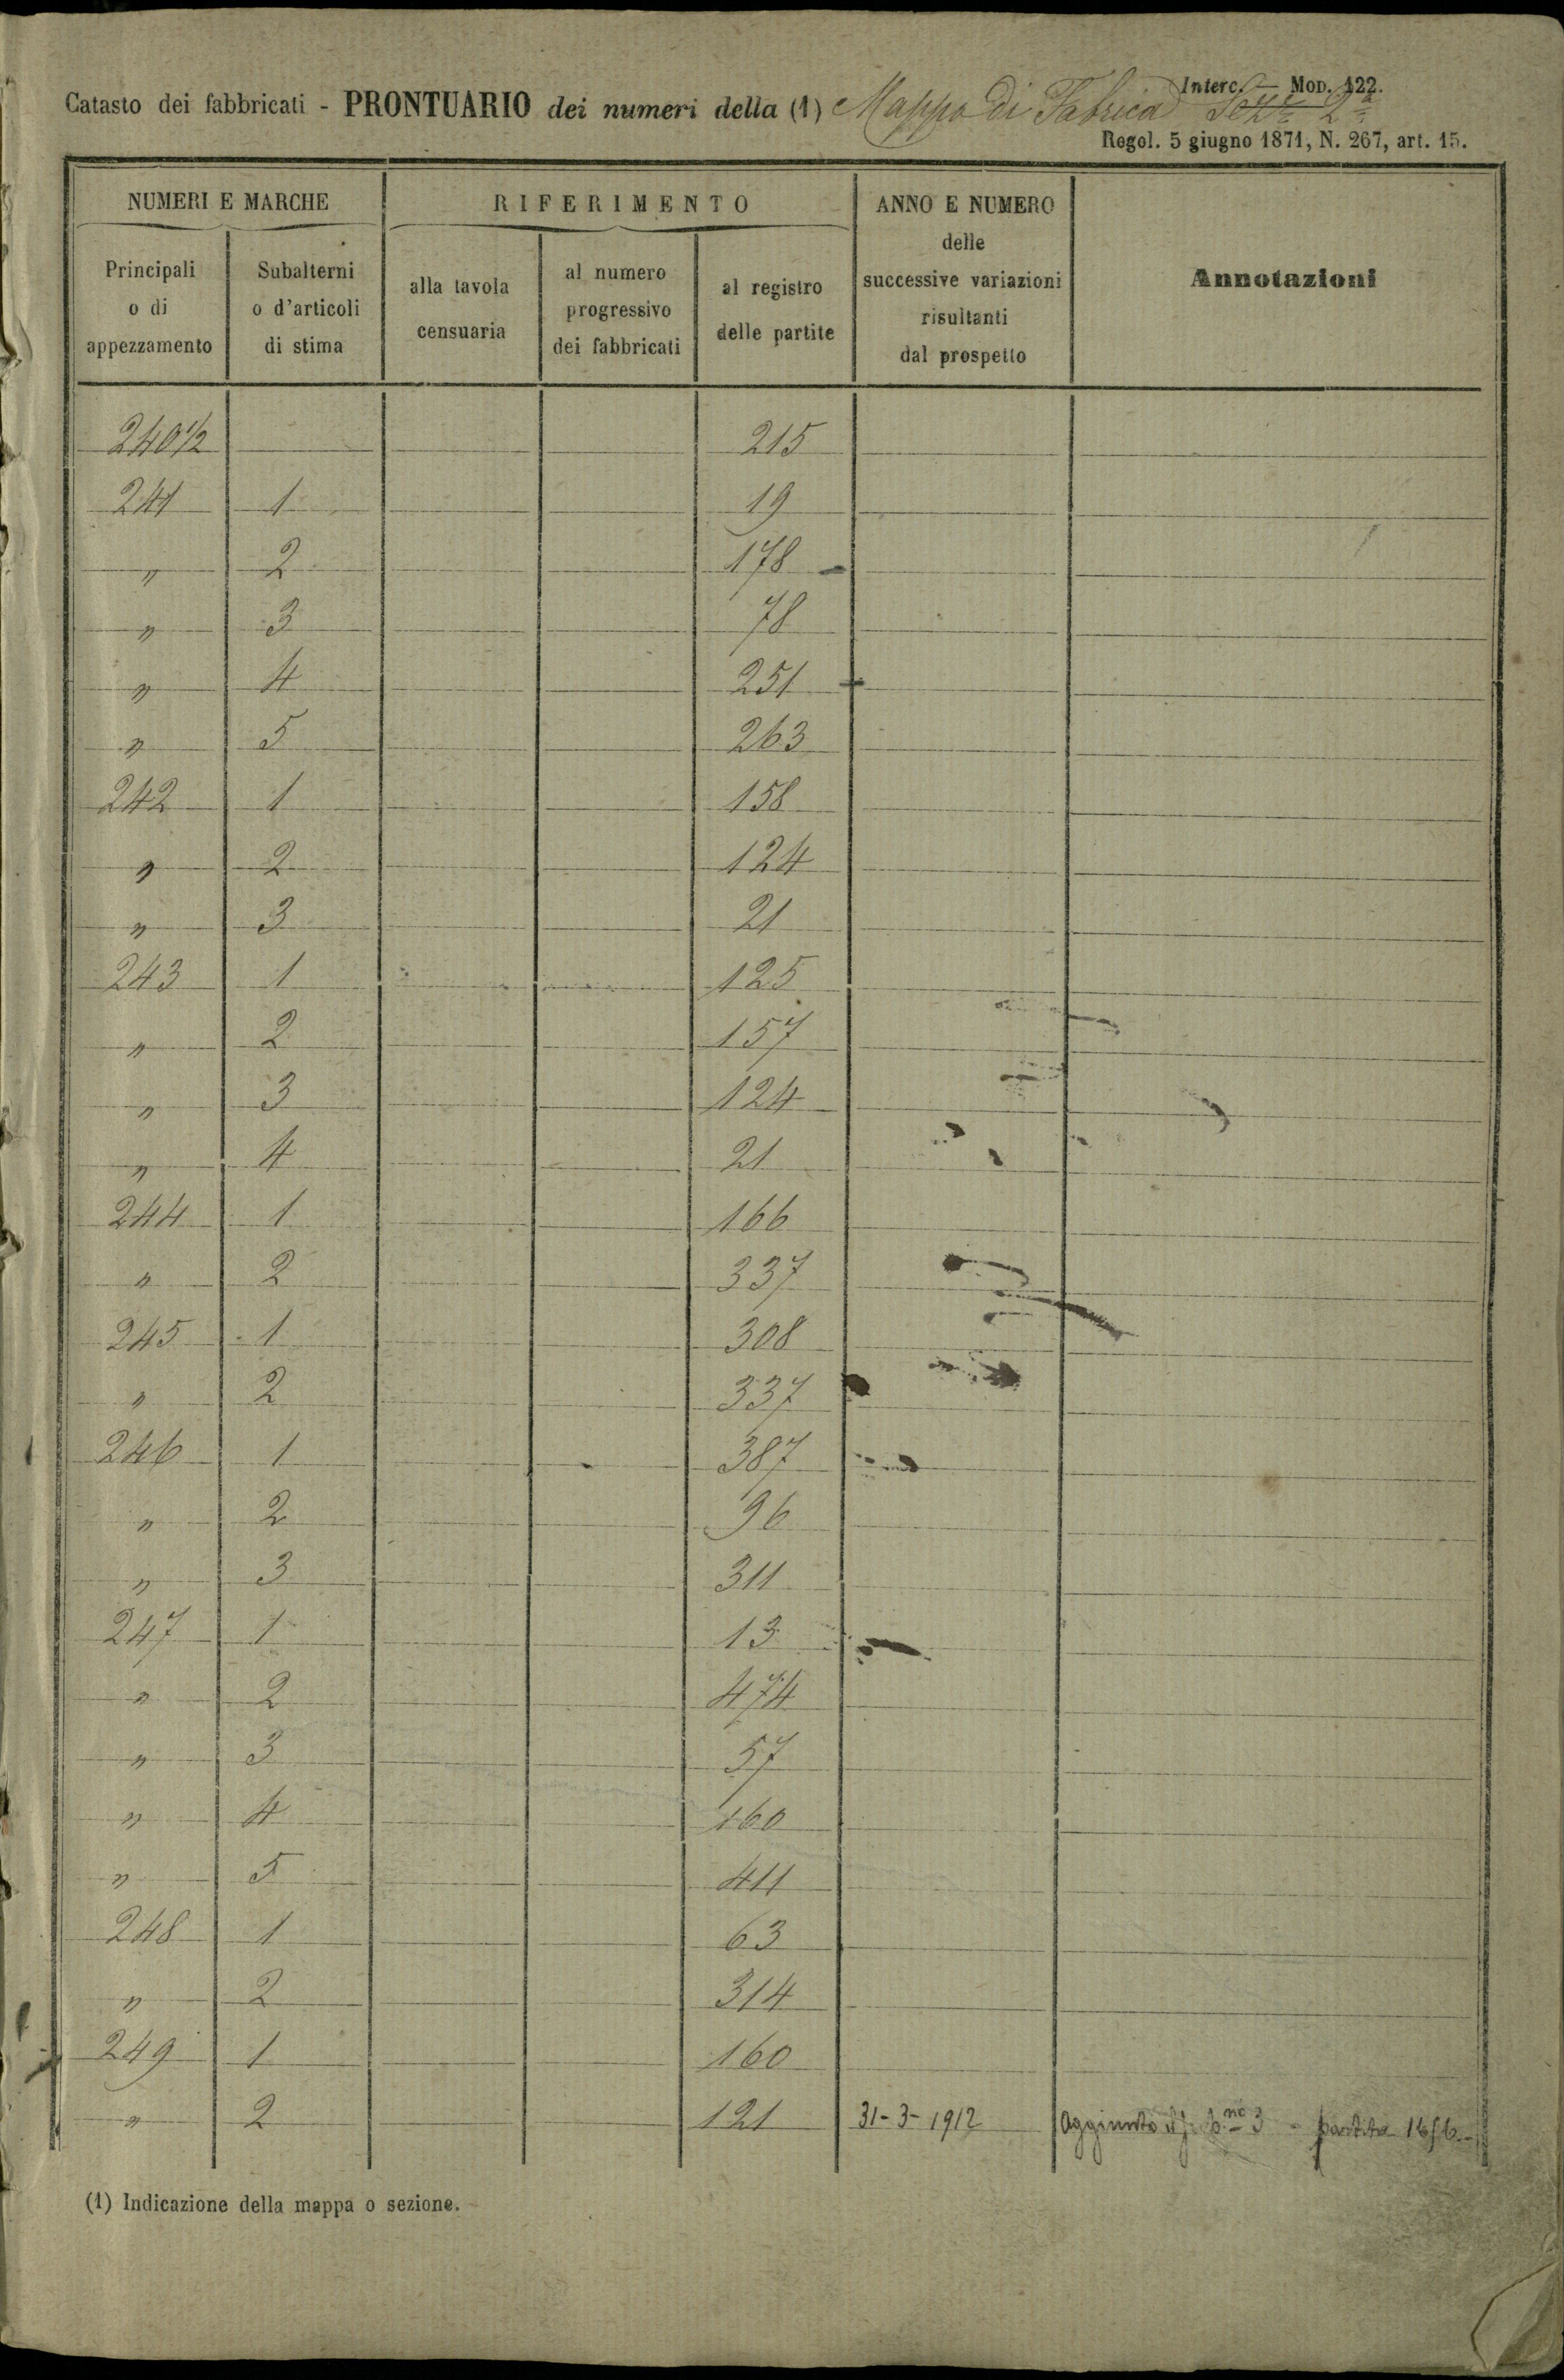 Interc. — Mod. 122.
Catasto dei fabbricati - PRONTUARIO dei numeri della (1) Mappa di Fabrica Sezne 2a
Regol. 5 giugno 1871, N. 267, art. 15.
NUMERI E MARCHE RIFERIMENTO ANNO E NUMERO delle successive variazioni risultanti dal prospetto Annotazioni
Principali o di appezzamento Subalterni o d'articoli di stima alla tavola censuaria al numero progressivo dei fabbricati al registro delle partite
240 1/2 215
241 1 19
" 2 178
" 3 78
" 4 251
" 5 263
242 1 158
" 2 124
" 3 21
243 1 125
" 2 157
" 3 124
" 4 21
244 1 166
" 2 337
245 1 308
" 2 337
246 1 387
" 2 96
" 3 311
247 1 13
" 2 474
" 3 57
" 4 160
" 5 411
248 1 63
" 2 314
249 1 160
" 2 121 31-3-1912 Aggiunto 3 - partita
(1) Indicazione della mappa o sezione.